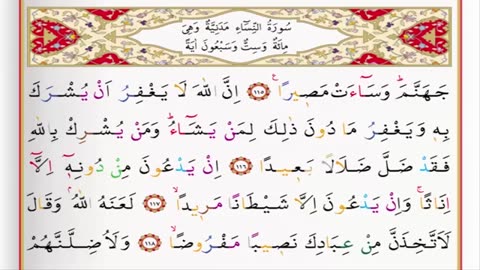 سُورَةُ النِّسَٓاءِ مَدَنِيَّةٌ وَهِيَ
مِائَةٌ وَسِتٌّ وَسَبْعُونَ اٰيَةً
جَهَنَّمَۜ وَسَٓاءَتْ مَص۪يراً۟ ﴿١١٥﴾ اِنَّ اللّٰهَ لَا يَغْفِرُ اَنْ يُشْرَكَ
بِه۪ وَيَغْفِرُ مَا دُونَ ذٰلِكَ لِمَنْ يَشَٓاءُۜ وَمَنْ يُشْرِكْ بِاللّٰهِ
فَقَدْ ضَلَّ ضَلَالاً بَع۪يداً ﴿١١٦﴾ اِنْ يَدْعُونَ مِنْ دُونِه۪ٓ اِلَّٓا
اِنَاثاًۚ وَاِنْ يَدْعُونَ اِلَّا شَيْطَاناً مَر۪يداًۙ ﴿١١٧﴾ لَعَنَهُ اللّٰهُۢ وَقَالَ
لَاَتَّخِذَنَّ مِنْ عِبَادِكَ نَص۪يباً مَفْرُوضاًۙ ﴿١١٨﴾ وَلَاُضِلَّنَّهُمْ